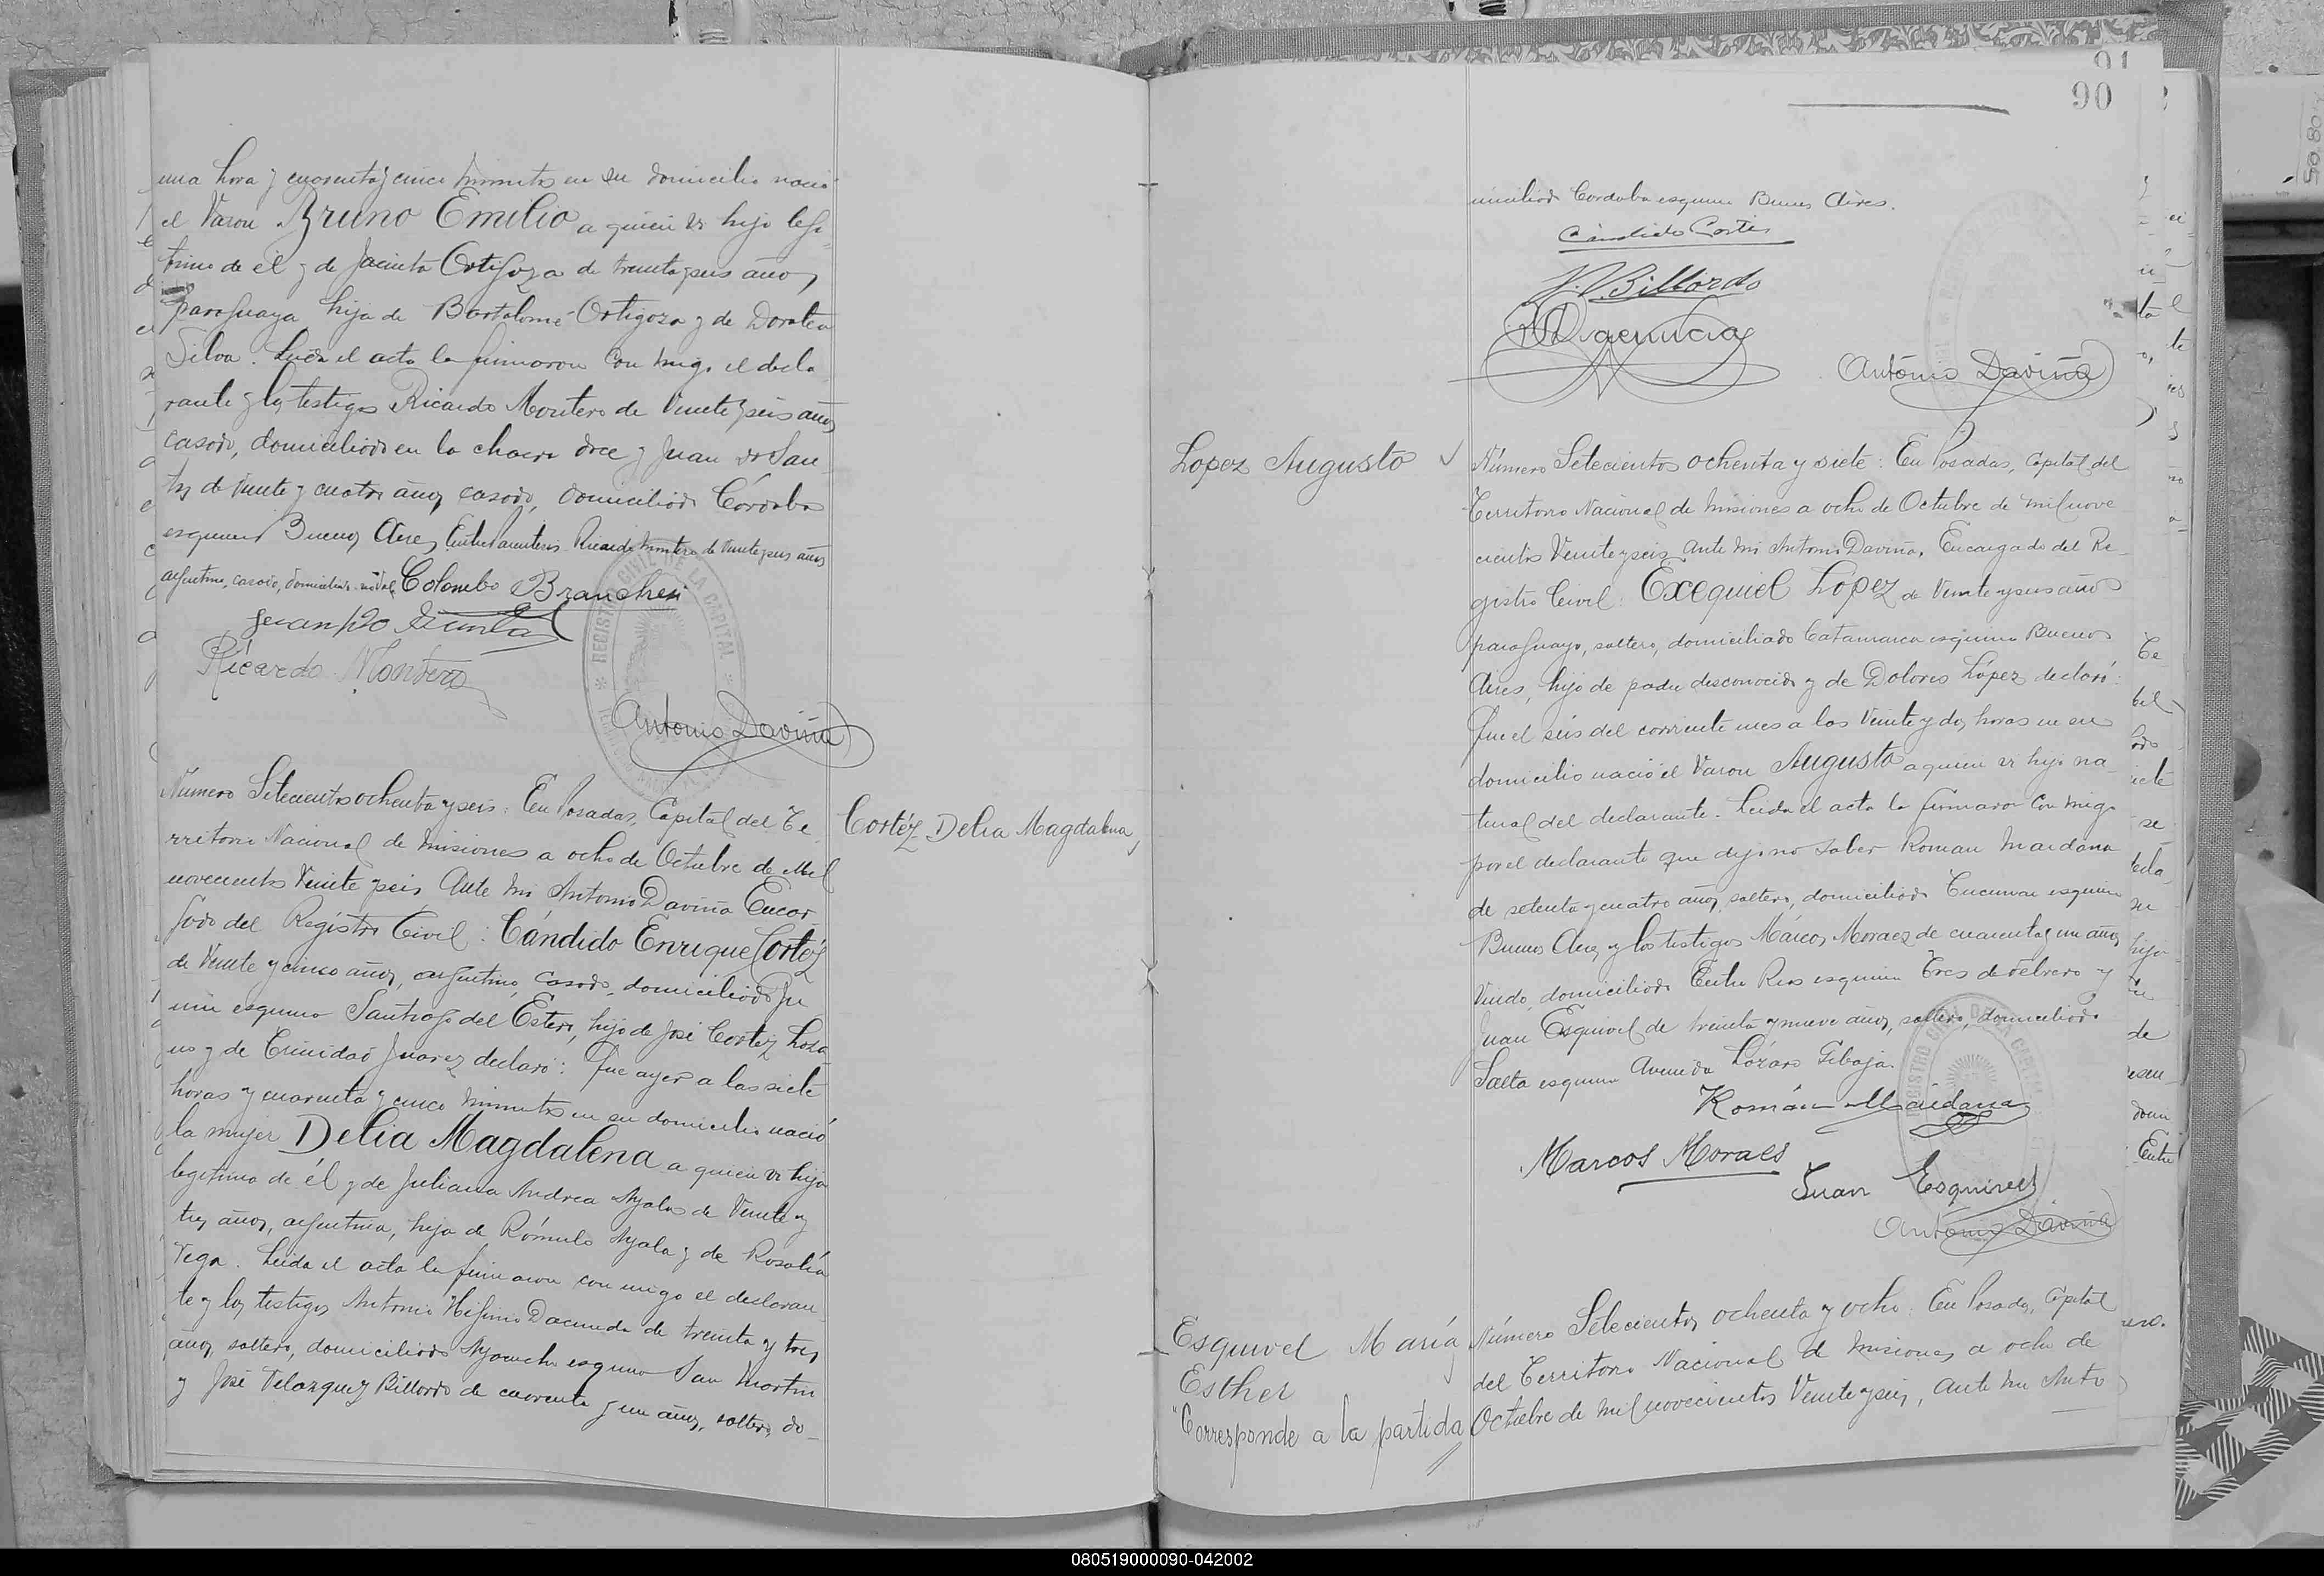 una hora y cuarenta y cinco minutos en su domicilio nació
el Varon Bruno Emilio a quien vi hijo legi-
timo de el y de Jacinta Ortigoza de treinta y seis años,
paraguaya hija de Bartolomé Ortigoza y de Dorotea
Silva. Leida el acta la firmaron con migo el decla
rante y los testigos Ricardo Montero de Veinte y seis años
casado, domiciliado en la chacra doce y Juan do San
tos de Veinte y cuatro años, casado, domiciliado Córdoba
esquina Buenos Aires, Entre Parentesis Ricardo Montero de Veinte y seis años
argentino, casado, domiciliado no Vale Colombo Brancheri
Ricardo Montero
REGISTRO CIVIL DE LA CAPITAL
Antonio Daviña
Número Setecientos ochenta y seis: En Posadas, Capital del Te
rritorio Nacional de Misiones a ocho de Octubre de Mil
novecientos Veinte y seis Ante Mi Antonio Daviña Encar
gado del Registro Civil: Cándido Enrique Cortéz
de Veinte y cinco años, argentino, casado, domiciliado Ju
nin esquina Santiago del Estero, hijo de José Cortéz Loza
no y de Trinidad Juarez declaró: Que ayer a las siete
horas y cuarenta y cinco minutos en su domicilio nació
la mujer Delia Magdalena a quien vi hija
legitima de él y de Juliana Andrea Ayala de Veinte y
tres años, argentina, hija de Rómulo Ayala y de Rosalía
Vega. Leida el acta la firmaron con migo el declaran
te y los testigos Antonio Higinio Dacunda de treinta y tres
años, soltero, domiciliado Ayacucho esquina San Martin
y José Velazquez Billordo de cuarenta y un años, soltero, do-
Cortéz Delia Magdalena,
91
90
miciliado Cordoba esquina Buenos Aires.
Cándido Cortéz
J. V. Billordo
Antonio Daviña
Lopez Augusto
Número Setecientos ochenta y siete: En Posadas, Capital del
Territorio Nacional de Misiones a ocho de Octubre de mil nove
cientos Veinte y seis Ante Mi Antonio Daviña, Encargado del Re-
gistro Civil: Exequiel López de Veinte y seis años
paraguayo, soltero, domiciliado Catamarca esquina Buenos
Aires, hijo de padre desconocido y de Dolores López declaró:
Que el seis del corriente mes a las Veinte y dos horas en su
domicilio nació el Varon Augusto a quien vi hijo na-
tural del declarante. Leida el acta la firmaron con migo
por el declarante que dijo no saber Roman Maidana
de setenta y cuatro años, soltero, domiciliado Tucuman esquina
Buenos Aires, y los testigos Márcos Moraez de cuarenta y un años,
viudo, domiciliado Entre Rios esquina Tres de Febrero y
Juan Esquivel de treinta y nueve años, soltero, domiciliado
Salta esquina Avenida Lázaro Gibaja.
Román Maidana
Marcos Moraes
Juan Esquivel
Antonio Daviña
Esquivel María
Esther
"Corresponde a la partida
Número Setecientos ochenta y ocho: En Posadas, Capital
del Territorio Nacional de Misiones a ocho de
Octubre de mil novecientos Veinte y seis, Ante Mi Anto
080519000090-042002